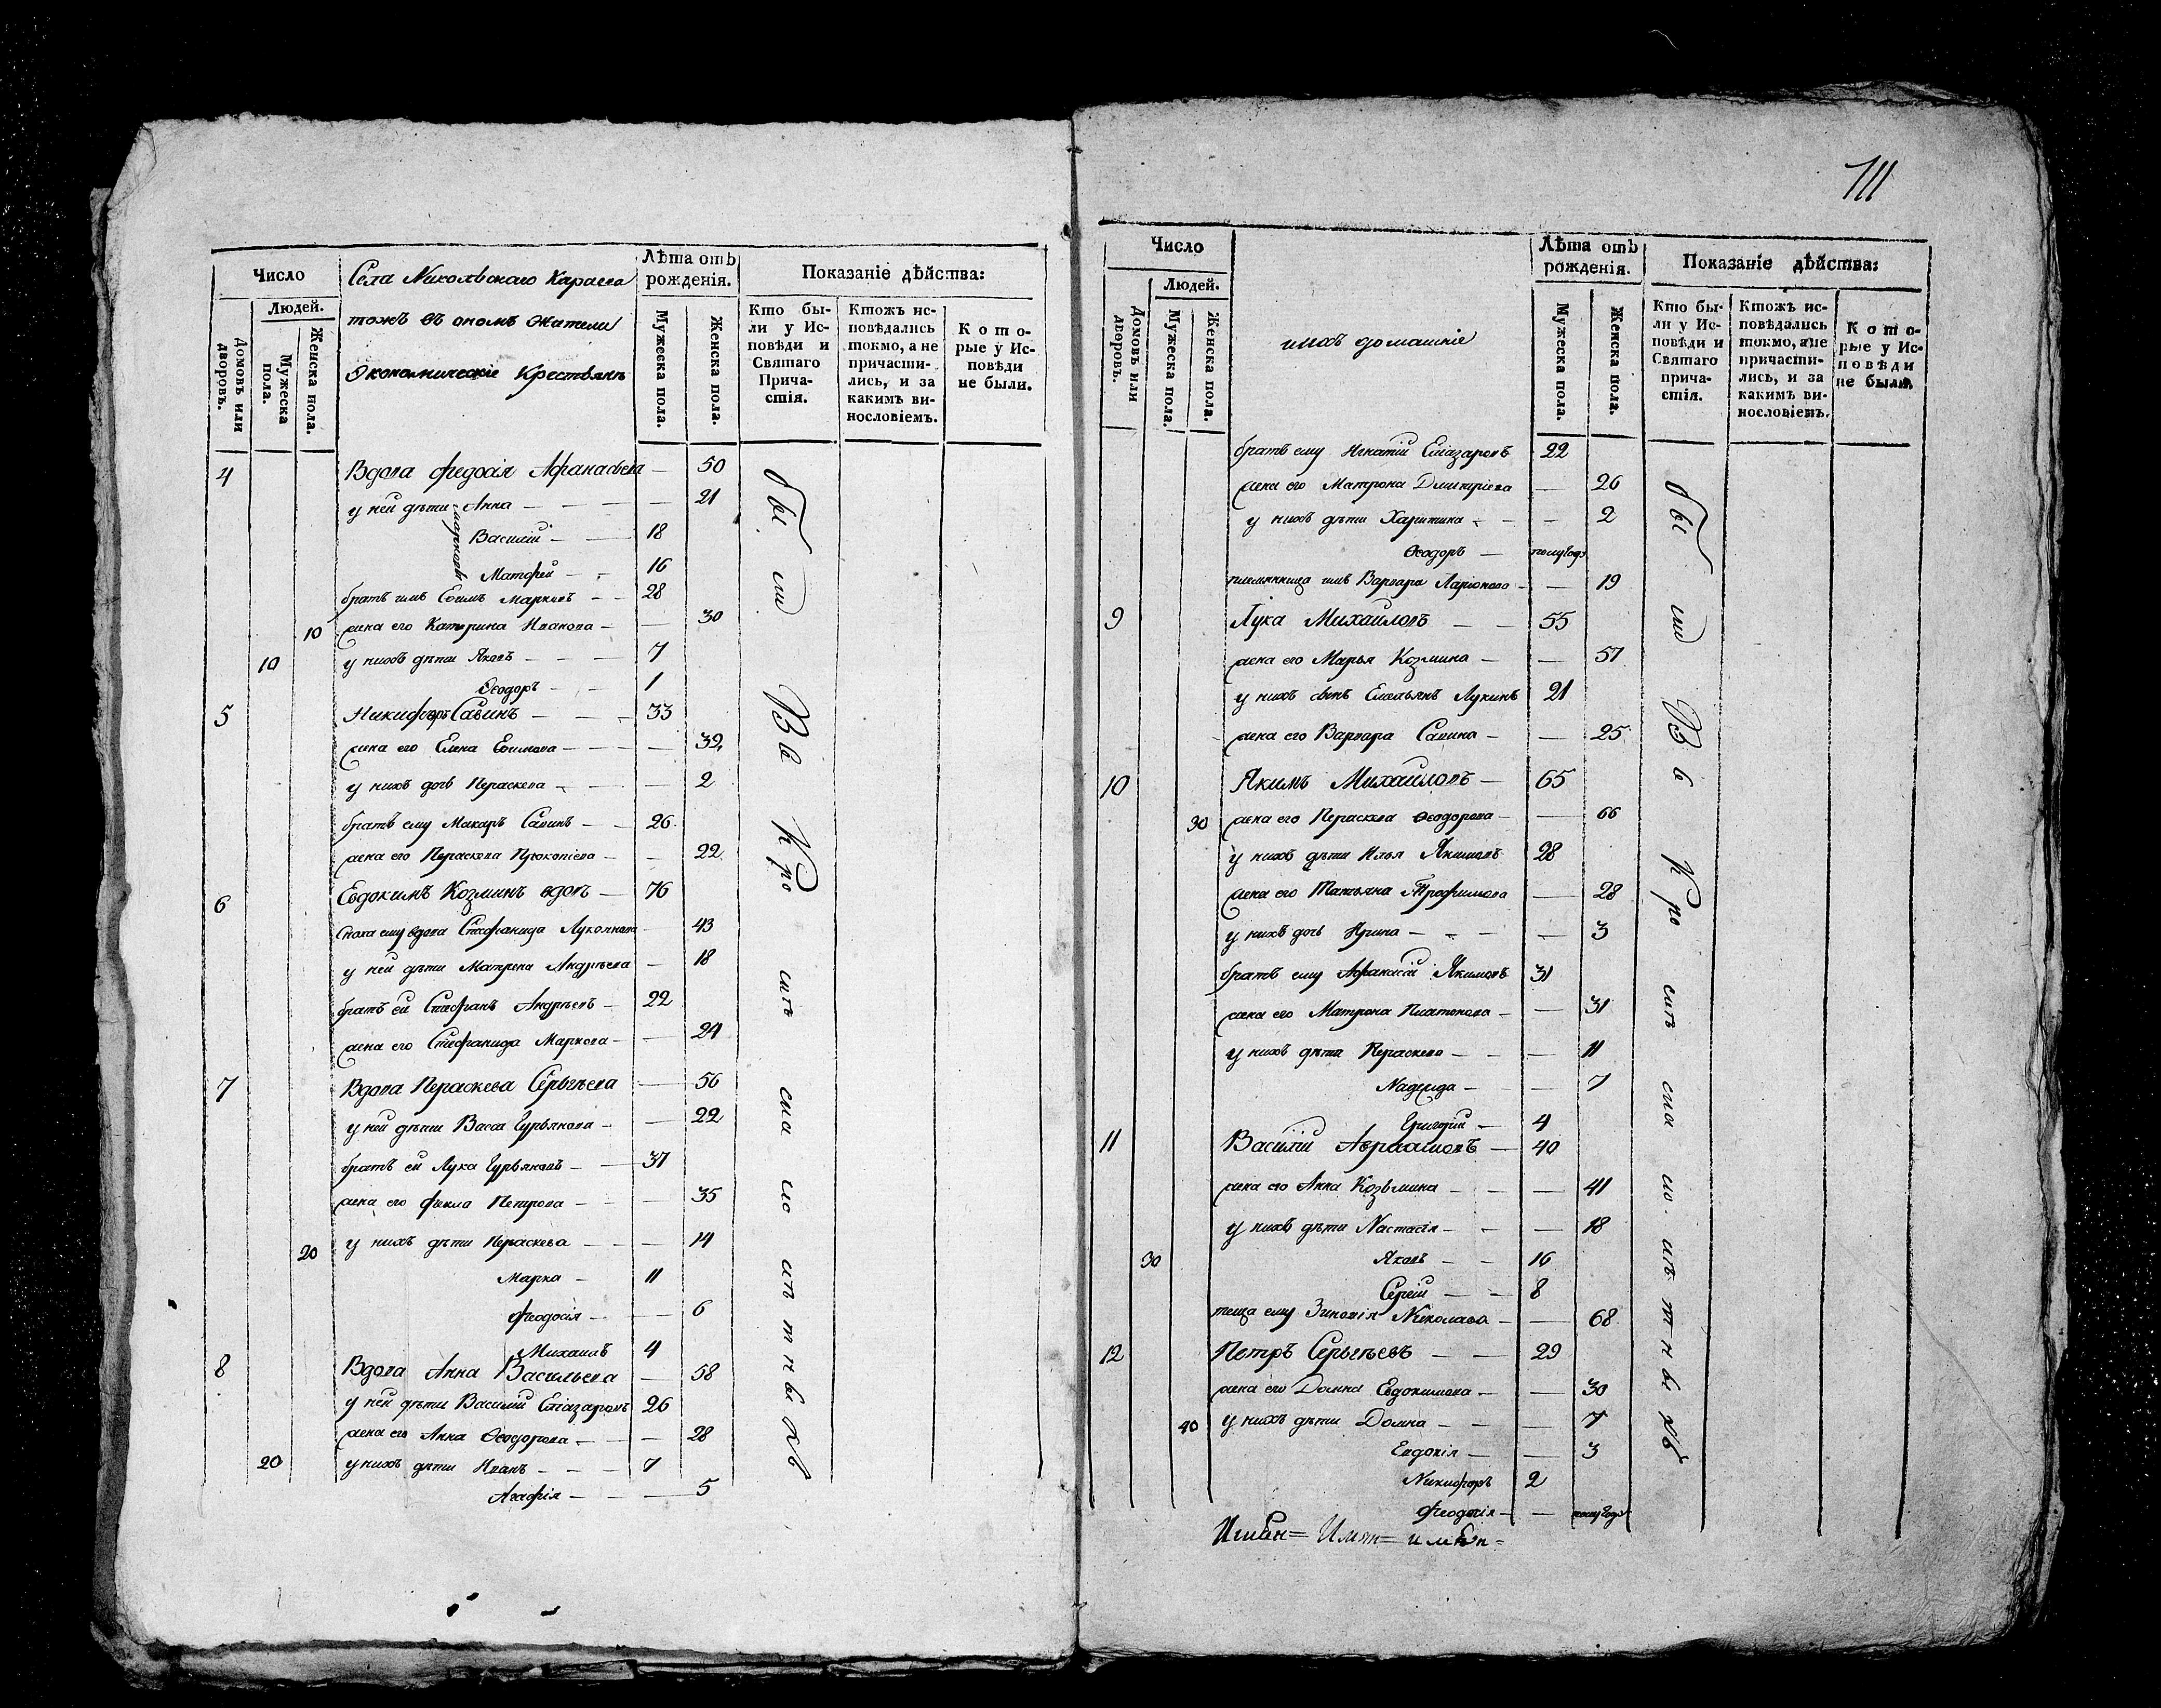 Число
Людей.
Домовъ или дворовъ.
Мужеска пола.
Женска пола.
Села Никольскаго Караева
тожъ въ ономъ жители
Экономическіе Крестьянъ
Лѣта отъ рожденія.
Мужеска пола.
Женска пола.
Показаніе дѣйства:
Кто были у Исповѣди и Святаго Причастія.
Ктожъ исповѣдались токмо, а не причастились, и за какимъ винословіемъ.
Которые у Исповѣди не были.
4 Вдова Федосія Афанасьева — 50
у ней дѣти Анна — — 21
Марковы
Василій — 18
Матфей — 16
братъ имъ Ефимъ Марковъ — 28
10 жена его Катерина Иванова — — 30
10 у нихъ дѣти Яковъ — 7
Ѳеодоръ — 1
5 Никифоръ Савинъ — 33
жена его Елена Ефимова — — 32
у нихъ дочь Пераскева — — 2
братъ ему Макаръ Савинъ — 26
жена его Пераскева Прокопіева — — 22
6 Евдокимъ Козминъ вдовъ — 76
Сноха ему вдова Стефанида — 43
у ней дѣти Матрена Андрѣева — 18
братъ ей Стефанъ Андрѣевъ — 22
жена его Стефанида Маркова — — 24
7 Вдова Пераскева Сергѣева — 56
у ней дѣти Васса Гурьянова — — 22
братъ ей Лука Гурьяновъ — 37
жена его Фекла Петрова — — 35
20 у нихъ дѣти Пераскева — — 14
Марка — 11
Феодосія — — 6
Михаилъ 4
8 Вдова Анна Васильева — 58
у ней дѣти Василій Еліазаровъ 26
жена его Анна Ѳеодорова — — 28
20 у нихъ дѣти Иванъ — 7
Агафія — — 5
были Вь Кро
111
Число
Людей.
Домовъ или дворовъ.
Мужеска пола.
Женска пола.
ихъ домашніе
Лѣта отъ рожденія.
Мужеска пола.
Женска пола.
Показаніе дѣйства:
Кто были у Исповѣди и Святаго причастія.
Ктожъ исповѣдались токмо, а не причастились, и за какимъ винословіемъ.
Которые у Исповѣди не были.
братъ ему Игнатій Еліазаровъ 22
жена его Матрона Дмитріева — 26
у нихъ дѣти Харитина — — 2
Ѳеодоръ — полугода
племянница имъ Варвара Ларіонова — — 19
9 Лука Михаиловъ — — 55
жена его Марья Козмина — — 57
у нихъ сынъ Емельянъ Лукинъ 21
жена его Варвара Савина — — 25
10 Якимъ Михаиловъ — 65
30 жена его Пераскева Ѳеодорова — — 66
у нихъ дѣти Илья Якимовъ 28
жена его Татьяна Трофимова — 28
у нихъ дочь Ирина — — 3
братъ ему Афанасій Якимовъ 31
жена его Матрона Платонова — — 31
у нихъ дѣти Пераскева — — 11
Надежда — — 7
Григорій — 4
11 Василій Авраамовъ — 40
жена его Анна Козьмина — — 41
у нихъ дѣти Настасія — — 18
30 Яковъ — 16
Сергій — 8
теща ему Зиновія Николаева — — 68
12 Петръ Сергѣевъ — 29
жена его Домна Евдокимова — — 30
40 у нихъ дѣти Домна — — 7
Евдокія — — 3
Никифоръ 2
Феодосія — — полугода
были Вь Кро